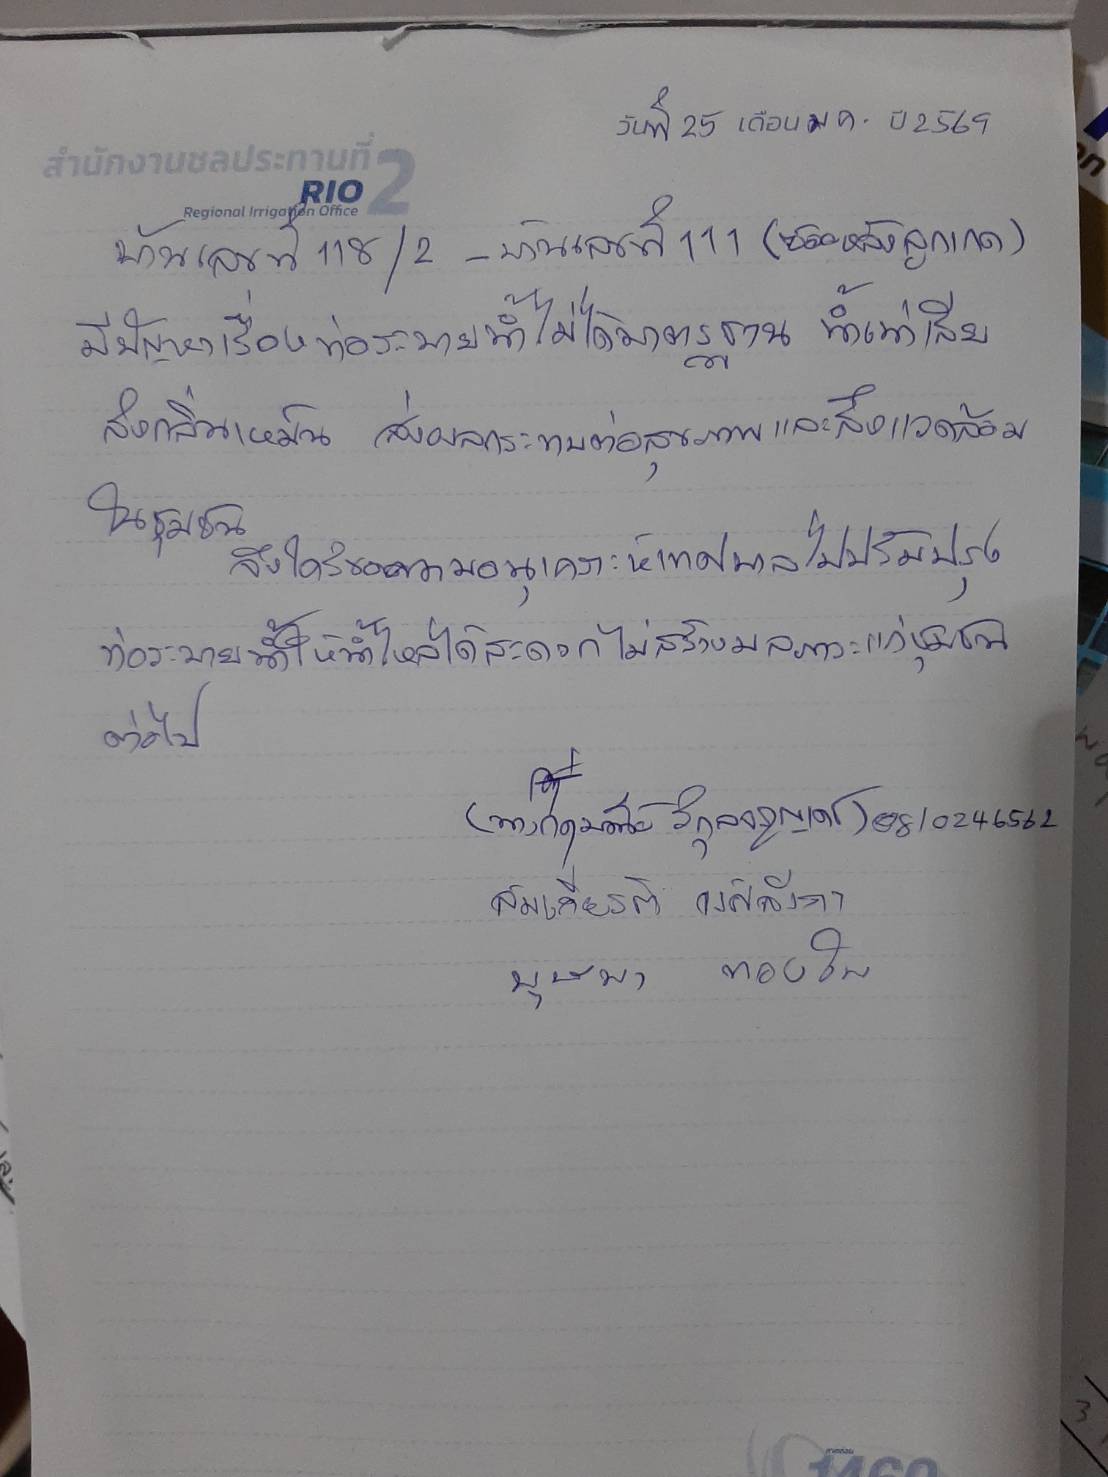 วันที่ 25 เดือน ม ค. ปี 2569
สำนักงานชลประทานที่ 2
RIO
Regional Irrigation Office
บ้านเลขที่ 118/2 - บ้านเลขที่ 111 (ลูกเกด)
มีปัญหาเรื่องท่อระบายน้ำไม่ได้มาตรฐาน น้ำเน่าเสีย
ส่งกลิ่นเหม็น ส่งผลกระทบต่อสุขภาพและสิ่งแวดล้อม
ในชุมชน
จึงใคร่ขอความอนุเคราะห์เทศบาลไปปรับปรุง
ท่อระบายน้ำให้น้ำไหลได้สะดวก ไม่สร้างมลภาวะแก่ชุมชน
ต่อไป
0810246562
สมเกียรติ
บุษบา ทองใบ
1460